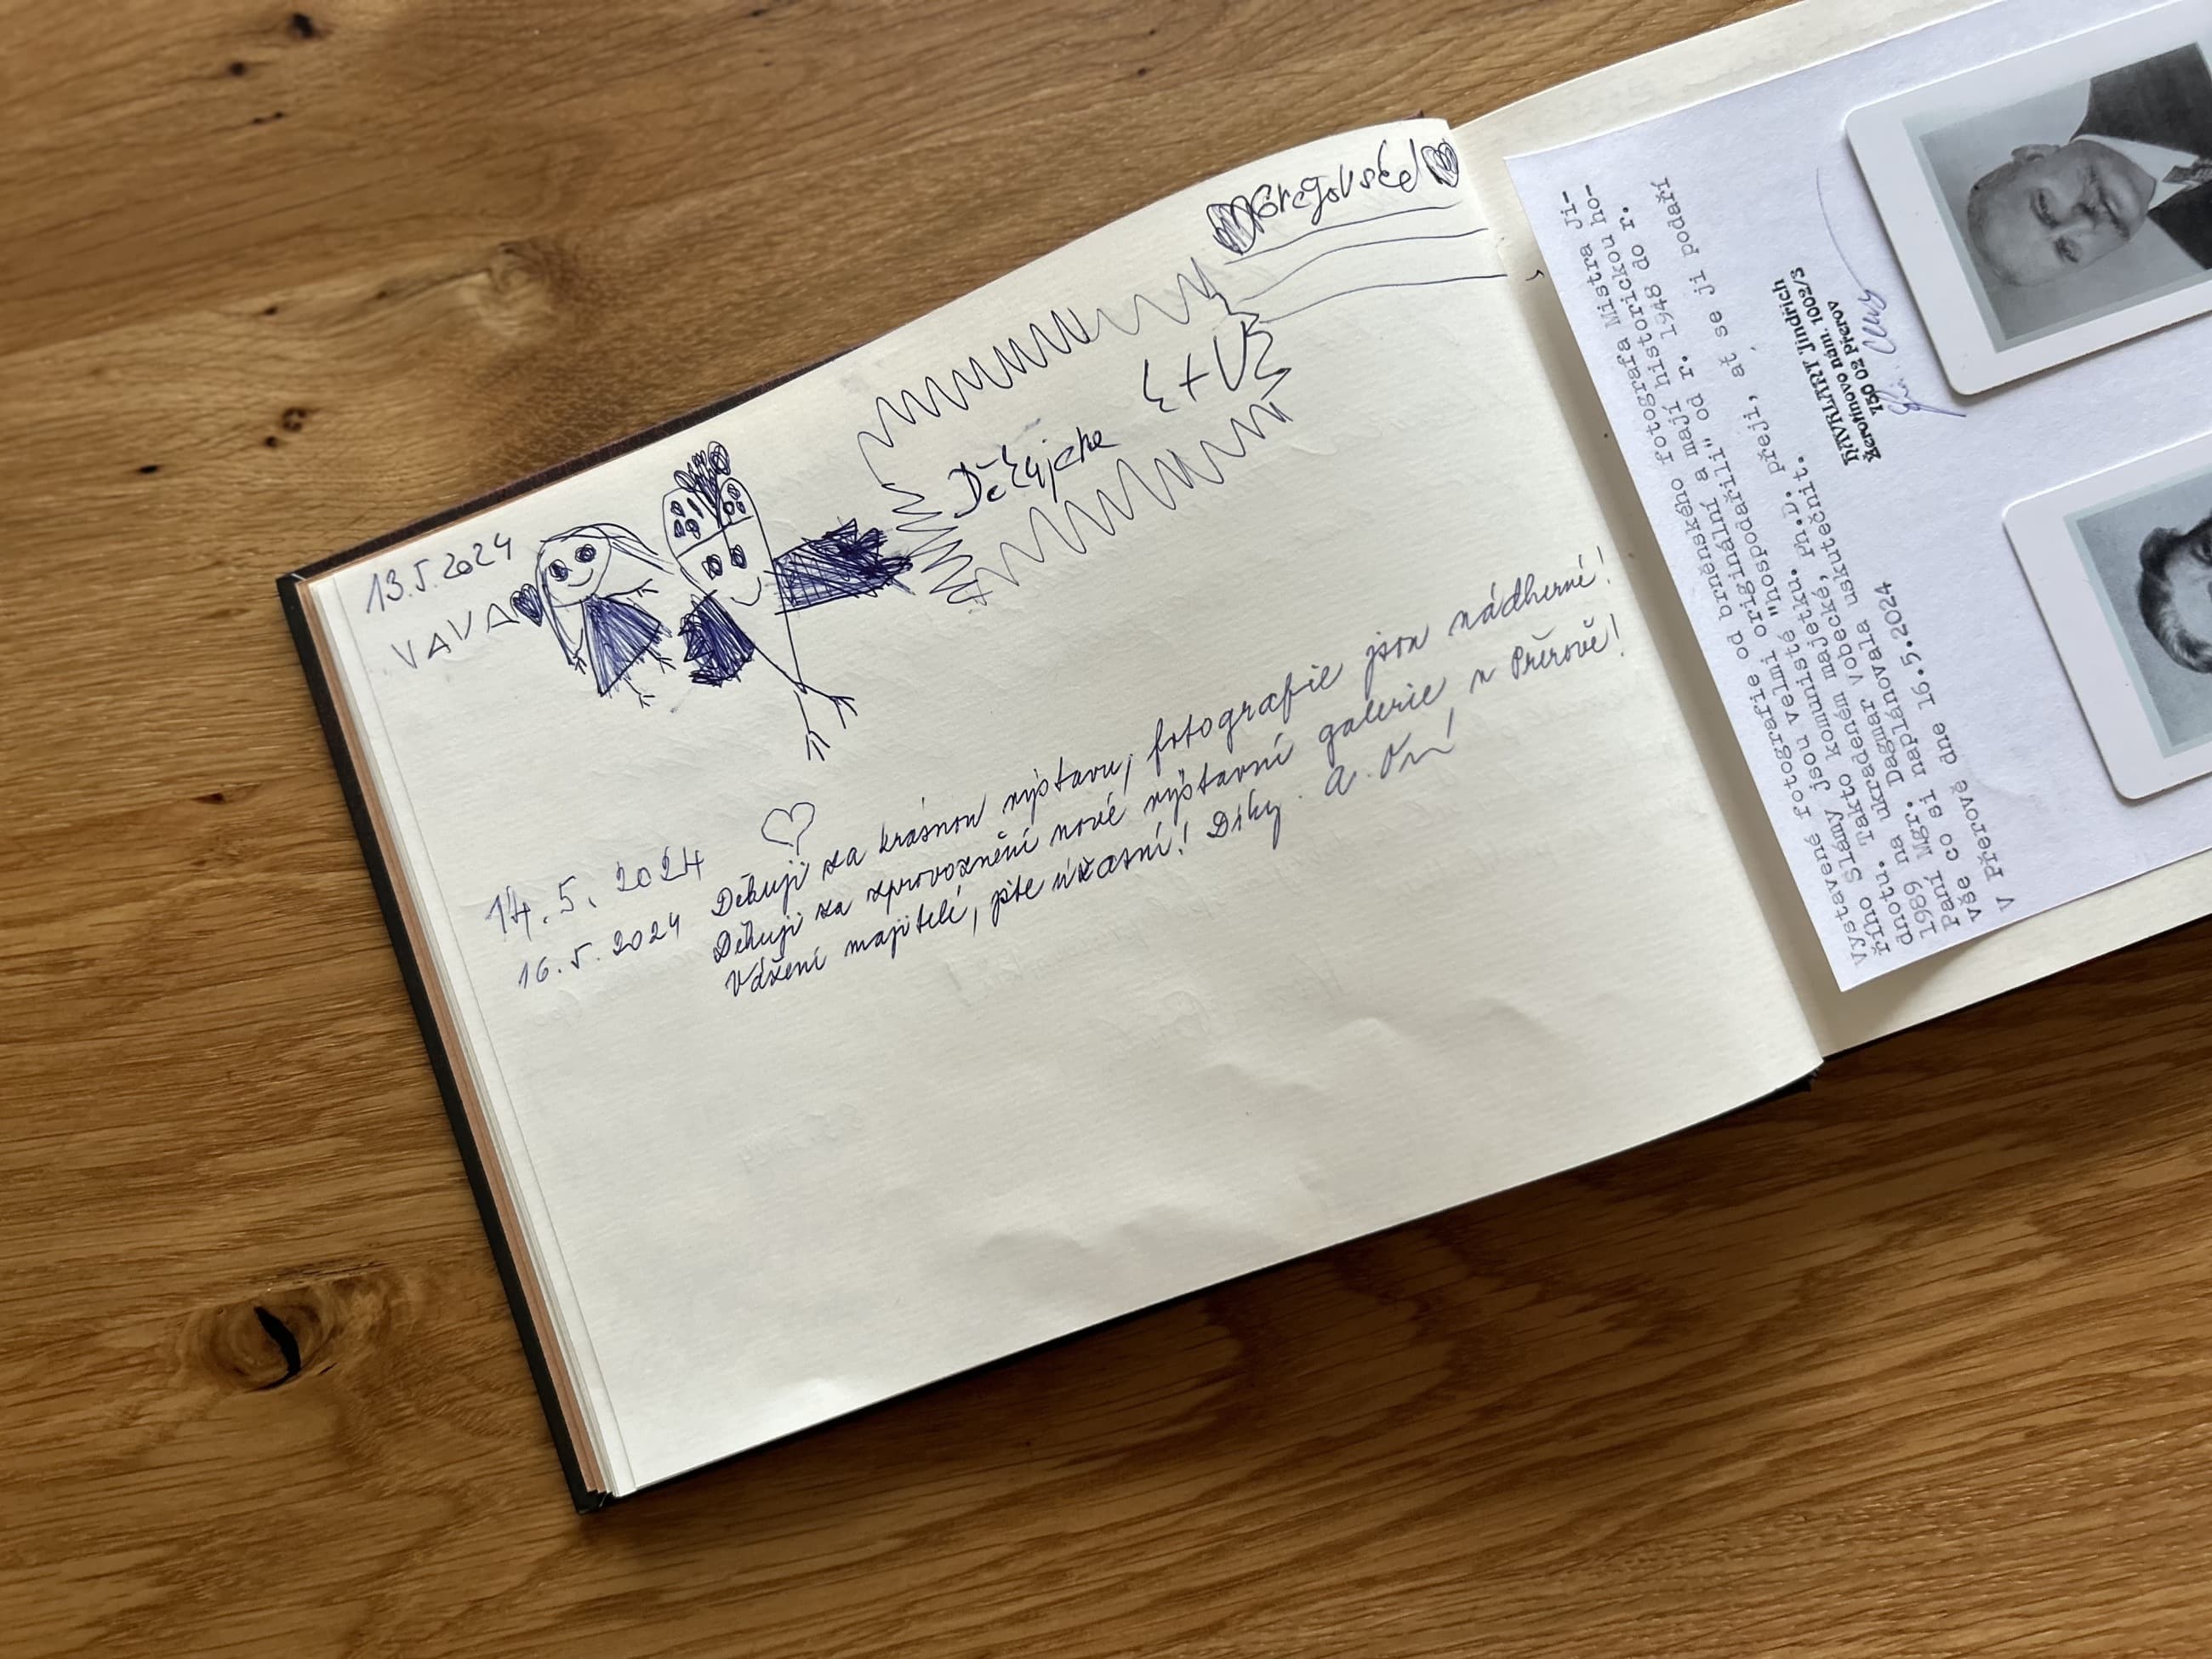 13.5.2024
VAVA
Děkujeme
14.5.2024
16.5.2024 Děkuji za krásnou výstavu, fotografie jsou nádherné!
Děkuji za zprovoznění nové výstavní galerie v Přerově!
Vážení majitelé, jste úžasní! Díky.
Vystavené fotografie od brněnského fotografa Mistra Ji-
řího Slámy jsou velmi originální a mají historickou ho-
dnotu. Takto komunisté "hospodařili" od r. 1948 do r.
1989 na ukradeném obecním majetku.
Paní Mgr. Dagmar Ph.D. přeji, ať se jí podaří
vše co si naplánovala uskutečnit.
V Přerově dne 16.5.2024
NAVRLART Jindřich
Žerotínovo nám. 1002/S
750 02 Přerov